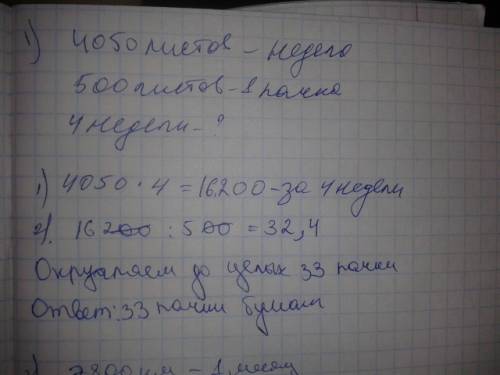 1) 4050 листов - неделя
500 листов - 1 пачка
4 недели - ?
1) 4050 · 4 = 16200 - за 4 недели
2) 16200 : 500 = 32,4
Округляем до целых 33 пачки
Ответ: 33 пачки бумаги
2) 2800 км - 1 месяц